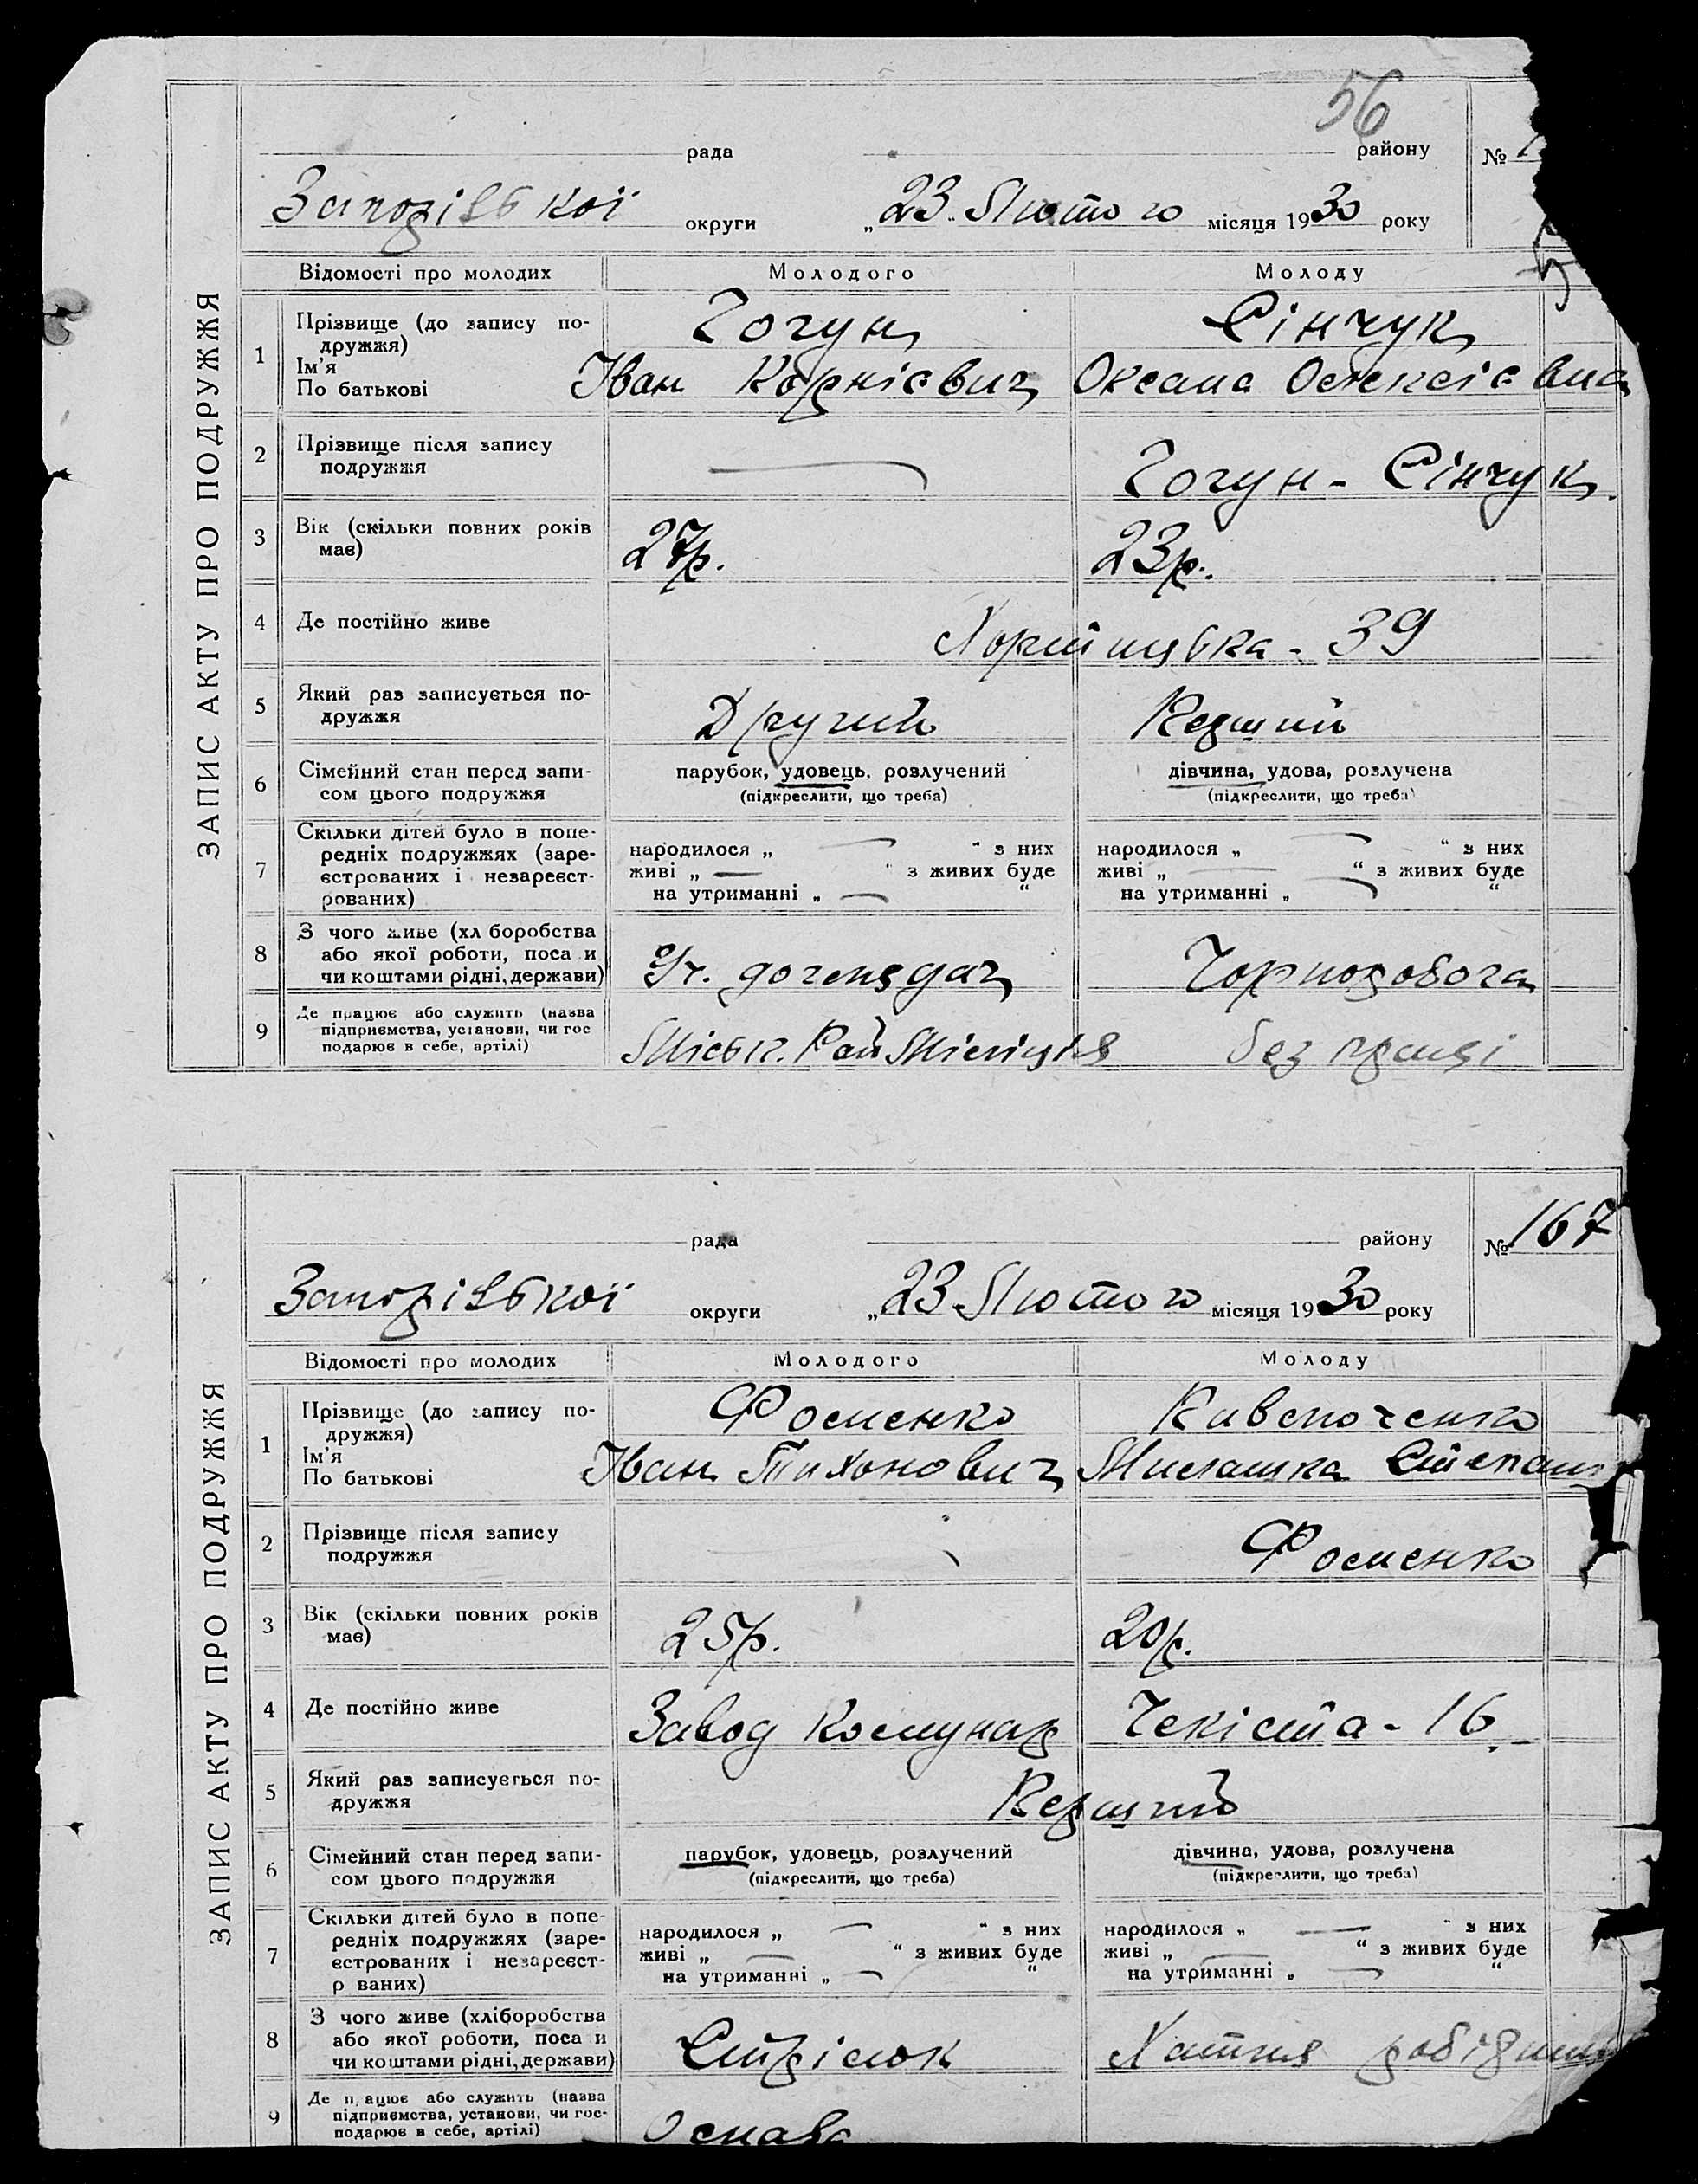 56
рада
району
№ 1
Запорізької округи „23" Лютого місяця 1930 року
ЗАПИС АКТУ ПРО ПОДРУЖЖЯ
Відомості про молодих
Молодого
Молоду
1
Прізвище (до запису по-
дружжя)
Ім'я
По батькові
Гогун
Іван Корнієвич
Сінчук
Оксана Олексієвна
2
Прізвище після запису
подружжя
—
Гогун - Сінчук
3
Вік (скільки повних років
має)
27р.
23р.
4
Де постійно живе
Хортицька - 39
5
Який раз записується по-
дружжя
Другий
Перший
6
Сімейний стан перед запи-
сом цього подружжя
парубок, удовець, розлучений
(підкреслити, що треба)
дівчина, удова, розлучена
(підкреслити, що треба)
7
Скільки дітей було в попе-
редніх подружжях (заре-
єстрованих і незареєст-
рованих)
народилося „ — “ з них
живі „ — “ з живих буде
на утриманні „ — “
народилося „ — “ з них
живі „ — “ з живих буде
на утриманні „ — “
8
З чого живе (хл боробства
або якої роботи, поса и
чи коштами рідні, держави)
Чорноробота
9
Де працює або служить (назва
підприємства, установи, чи гос
подарює в себе, артілі)
Міськ. Рай Міліція
без праці
рада
району
№ 167
Запорізької округи „23 Лютого місяця 1930 року
ЗАПИС АКТУ ПРО ПОДРУЖЖЯ
Відомості про молодих
Молодого
Молоду
1
Прізвище (до запису по-
дружжя)
Ім'я
По батькові
Фоменко
Іван Тихонович
Степан
2
Прізвище після запису
подружжя
Фоменко
3
Вік (скільки повних років
має)
25р.
20р.
4
Де постійно живе
Завод Комунар
Чекіста - 16
5
Який раз записується по-
дружжя
Перший
6
Сімейний стан перед запи-
сом цього подружжя
парубок, удовець, розлучений
(підкреслити, що треба)
дівчина, удова, розлучена
(підкреслити, що треба)
7
Скільки дітей було в попе-
редніх подружжях (заре-
єстрованих і незареєст-
р ваних)
народилося „ — “ з них
живі „ — “ з живих буде
на утриманні „ — “
народилося „ — “ з них
живі „ — “ з живих буде
на утриманні „ — “
8
З чого живе (хліборобства
або якої роботи, поса и
чи коштами рідні, держави)
Стрілок
Хатня робітниц
9
Де п ацює або служить (назва
підприємства, установи, чи гос-
подарює в себе, артілі)